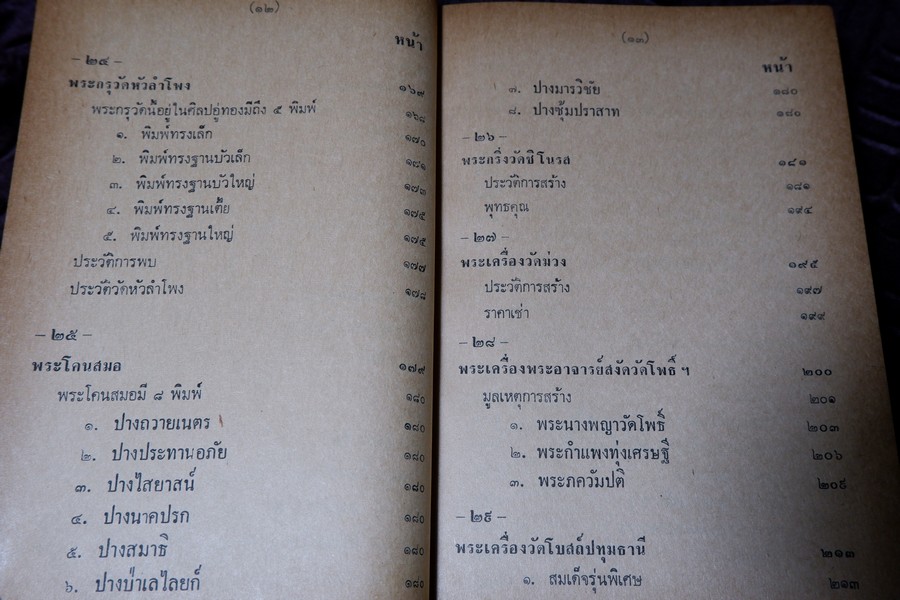 (๑๒)
หน้า
– ๒๔ –
พระกรุวัดหัวลำโพง ๑๖๗
พระกรุวัดนี้อยู่ในศิลปอู่ทองมีถึง ๕ พิมพ์ ๑๖๘
๑. พิมพ์ทรงเล็ก ๑๗๐
๒. พิมพ์ทรงฐานบัวเล็ก ๑๘๑
๓. พิมพ์ทรงฐานบัวใหญ่ ๑๗๓
๔. พิมพ์ทรงฐานเตี้ย ๑๗๕
๕. พิมพ์ทรงฐานใหญ่ ๑๗๕
ประวัติการพบ ๑๗๗
ประวัติวัดหัวลำโพง ๑๗๘
– ๒๕ –
พระโคนสมอ ๑๗๙
พระโคนสมอมี ๘ พิมพ์ ๑๘๐
๑. ปางถวายเนตร ๑๘๐
๒. ปางประทานอภัย ๑๘๐
๓. ปางไสยาสน์ ๑๘๐
๔. ปางนาคปรก ๑๘๐
๕. ปางสมาธิ ๑๘๐
๖. ปางป่าเลไลยก์ ๑๘๐
(๑๓)
หน้า
๗. ปางมารวิชัย ๑๘๐
๘. ปางซุ้มปราสาท ๑๘๐
– ๒๖ –
พระกริ่งวัดชิโนรส ๑๘๑
ประวัติการสร้าง ๑๘๑
พุทธคุณ ๑๙๔
– ๒๗ –
พระเครื่องวัดม่วง ๑๙๕
ประวัติการสร้าง ๑๙๗
ราคาเช่า ๑๙๙
– ๒๘ –
พระเครื่องพระอาจารย์สงัดวัดโพธิ์ ฯ ๒๐๐
มูลเหตุการสร้าง ๒๐๑
๑. พระนางพญาวัดโพธิ์ ๒๐๓
๒. พระกำแพงทุ่งเศรษฐี ๒๐๖
๓. พระภควัมปติ ๒๐๙
– ๒๙ –
พระเครื่องวัดโบสถ์ปทุมธานี ๒๑๓
๑. สมเด็จรุ่นพิเศษ ๒๑๓